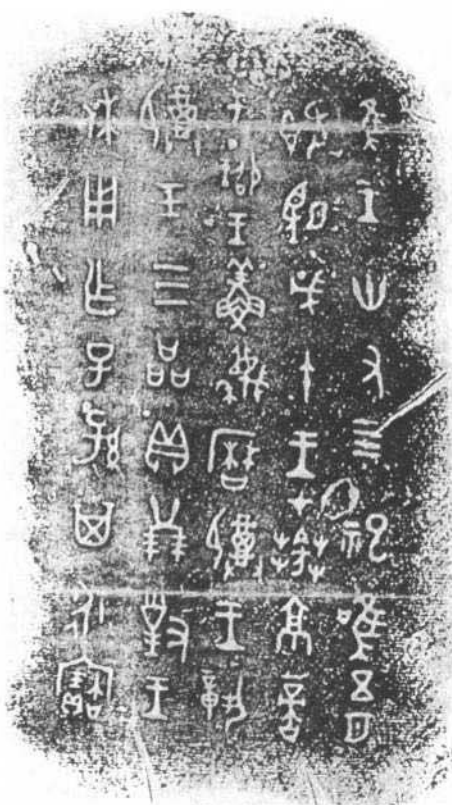 隹王卅又四祀唯五月
既望戊午王才䓊京啻
于卲王鮮蔑曆祼王
祼玉三品貝廿對王
休用乍子孫其永寶